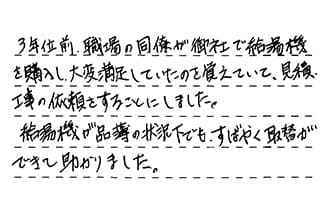 3年位前、職場の同僚が御社で給湯機
を購入し、大変満足していたのを覚えていて、見積、
工事の依頼をすることにしました。
給湯機が品薄の状況下でも、すばやく取替が
できて助かりました。